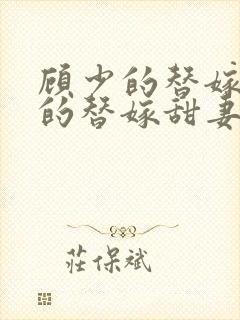 顾少的替嫁
的替嫁甜妻
莊保斌